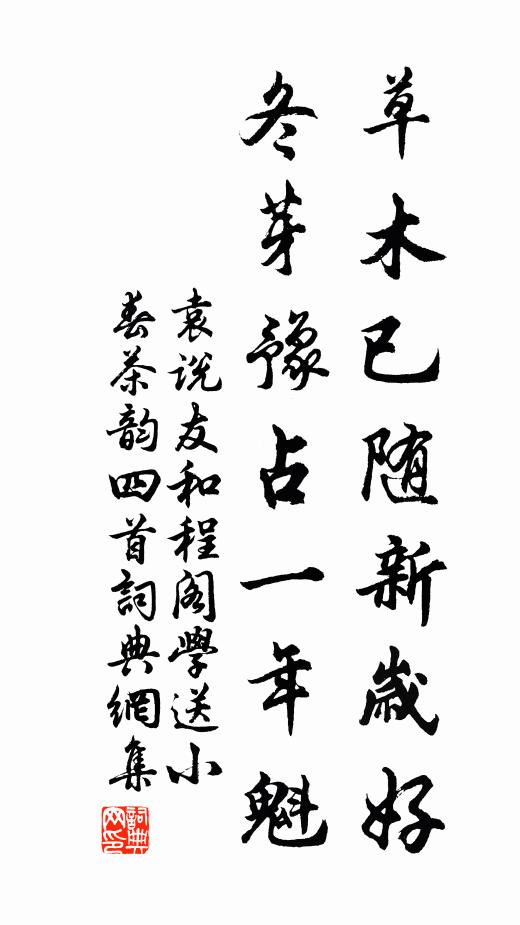 草木已随新歲好
冬芽豫占一年魁
袁説友和程阁學送小
春茶韵四首詞典網集
詞典
网印